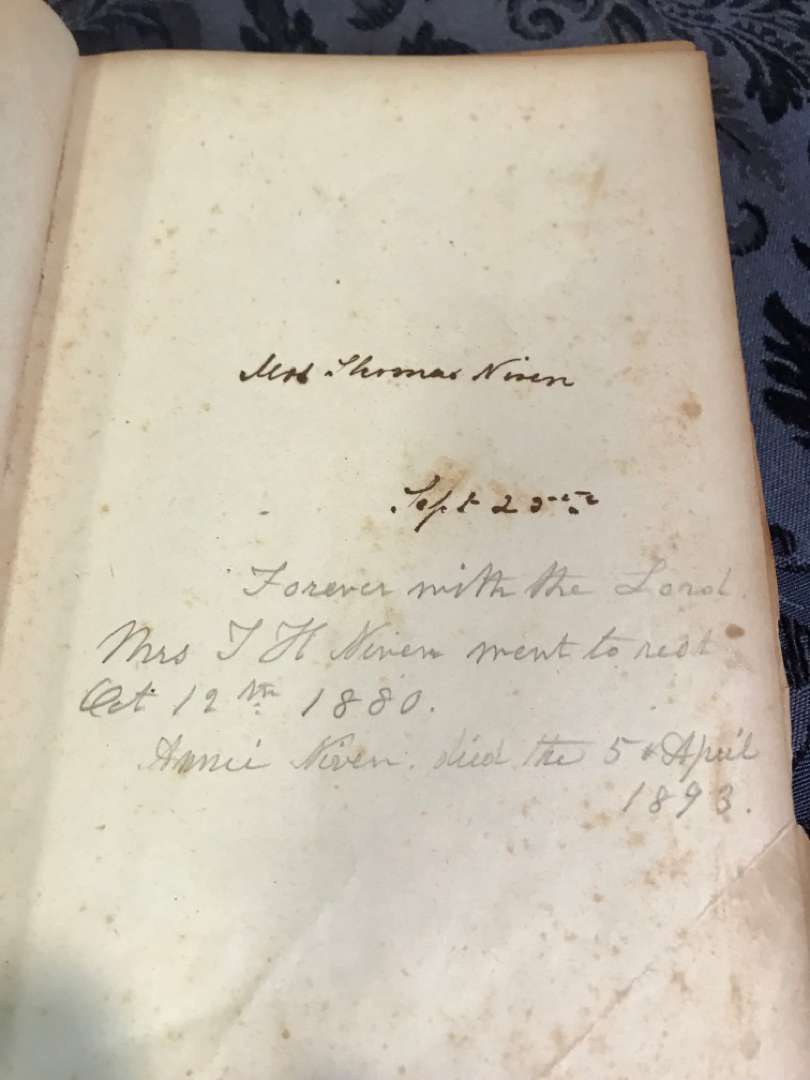 Mrs Thomas Niven
Sept
Forever with the Lord.
Mrs T H Niven went to rest
Oct 12th 1880.
Annie Niven. died the 5 April
1893.